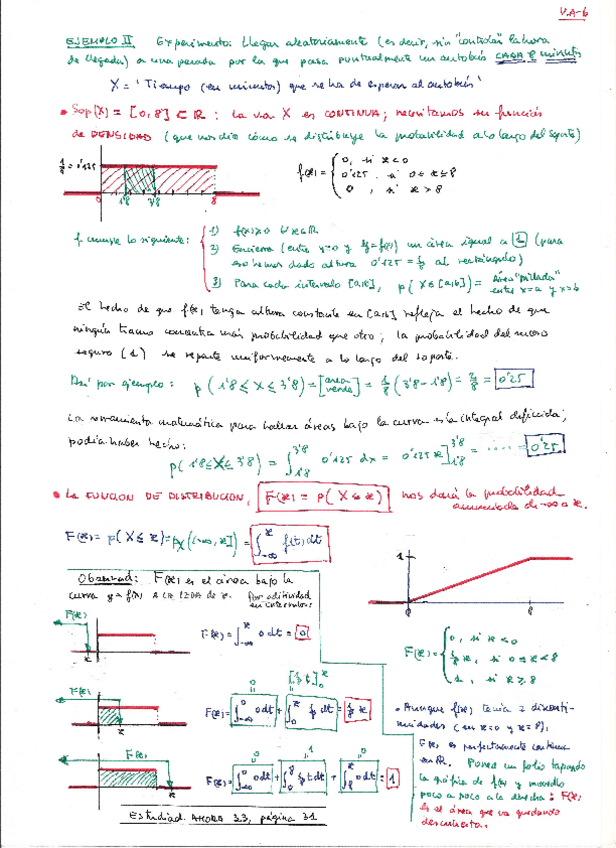 V.A-6
EJEMPLO II Experimento: Llegar aleatoriamente (es decir, sin "controlar" la hora
de llegada) a una parada por la que pasa puntualmente un autobús CADA 8 minutos
X = 'Tiempo (en minutos) que se ha de esperar al autobús'
• Sop(X) = [0,8] ⊂ ℝ : la va X es CONTINUA; necesitamos su función
de DENSIDAD (que nos dice cómo se distribuye la probabilidad a lo largo del soporte)
1/8 = 0'125
0 1'8 3'8 8
f(x) = { 0, si x<0
0'125 si 0≤x≤8
0, si x>8
f cumple lo siguiente: 1) f(x)≥0 ∀x∈ℝ
2) Encierra (entre y=0 y y=f(x)) un área igual a 1 (para
eso hemos dado altura 0'125 = 1/8 al rectángulo)
3) Para cada intervalo [a,b], p(X∈[a,b]) = Área "pillada" entre x=a y x=b
El hecho de que f(x) tenga altura constante en [a,b] refleja el hecho de que
ningún tramo concentra más probabilidad que otro; la probabilidad del suceso
seguro (1) se reparte uniformemente a lo largo del soporte.
Así por ejemplo: p(1'8 ≤ X ≤ 3'8) = [área verde] = 1/8 (3'8 - 1'8) = 2/8 = 0'25
La herramienta matemática para hallar áreas bajo la curva es la integral definida;
podía haber hecho:
p(1'8≤X≤3'8) = ∫ 3'8 1'8 0'125 dx = 0'125 x ] 3'8 1'8 = ...... = 0'25
• La FUNCION DE DISTRIBUCION, F(x) = p(X≤x) nos dará la probabilidad
acumulada de -∞ a x.
F(x) = p(X≤x) = pX((-∞,x]) = ∫ x -∞ f(t)dt
Observad: F(x) es el área bajo la
curva y=f(x) A LA IZDA de x.
Por aditividad
en intervalos:
1
0 8
F(x)
x
F(x) = ∫ x -∞ 0 dt = 0
F(x) = { 0, si x≤0
1/8 x, si 0≤x<8
1, si x≥8
F(x)
x
0 [1/8 t] x 0
F(x) = ∫ 0 -∞ 0dt + ∫ x 0 1/8 dt = 1/8 x
• Aunque f(x) tenía 2 disconti-
nuidades (en x=0 y x=8),
F(x) es perfectamente continua
en ℝ. Poned un folio tapando
la gráfica de f(x) y movedlo
poco a poco a la derecha: F(x)
es el área que va quedando
descubierta.
F(x)
x
0 1 0
F(x) = ∫ 0 -∞ 0dt + ∫ 8 0 1/8 dt + ∫ x 8 0dt = 1
Estudiad AHORA 3.3, página 31